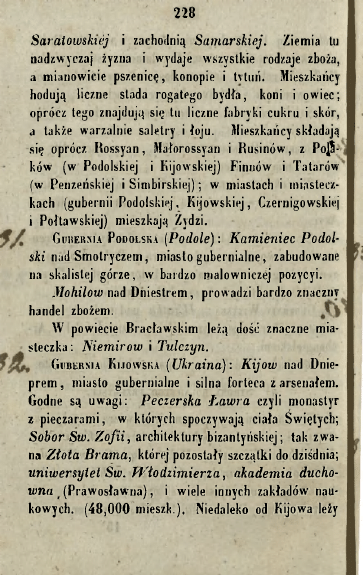 228
Saratowskiéj i zachodnią Samarskiej. Ziemia tu
nadzwyczaj żyzna i wydaje wszystkie rodzaje zboża,
a mianowicie pszenicę, konopie i tytuń. Mieszkańcy
hodują liczne stada rogatego bydła, koni i owiec;
oprócz tego znajdują się tu liczne fabryki cukru i skór,
a także warzalnie saletry i łoju. Mieszkańcy składają
się oprócz Rossyan, Małorossyan i Rusinów, z Pola-
ków (w Podolskiej i Kijowskiej) Finnów i Tatarów
(w Penzeńskiej i Simbirskiej); w miastach i miastecz-
kach (gubernii Podolskiej, Kijowskiej, Czernigowskiej
i Połtawskiej) mieszkają Żydzi.
31. Gubernia Podolska (Podole): Kamieniec Podol-
ski nad Smotryczem, miasto gubernialne, zabudowane
na skalistej górze, w bardzo malowniczej pozycyi.
Mohilow nad Dniestrem, prowadzi bardzo znaczny
handel zbożem.
W powiecie Bracławskim leżą dość znaczne mia-
steczka: Niemirow i Tulczyn.
32. Gubernia Kijowska (Ukraina): Kijow nad Dnie-
prem, miasto gubernialne i silna forteca z arsenałem.
Godne są uwagi: Peczerska Ławra czyli monastyr
z pieczarami, w których spoczywają ciała Świętych;
Sobor Sw. Zofii, architektury bizantyńskiej; tak zwa-
na Złota Brama, której pozostały szczątki do dziśdnia;
uniwersytet Sw. Włodzimierza, akademia ducho-
wna (Prawosławna), i wiele innych zakładów nau-
kowych. (48,000 mieszk.). Niedaleko od Kijowa leży